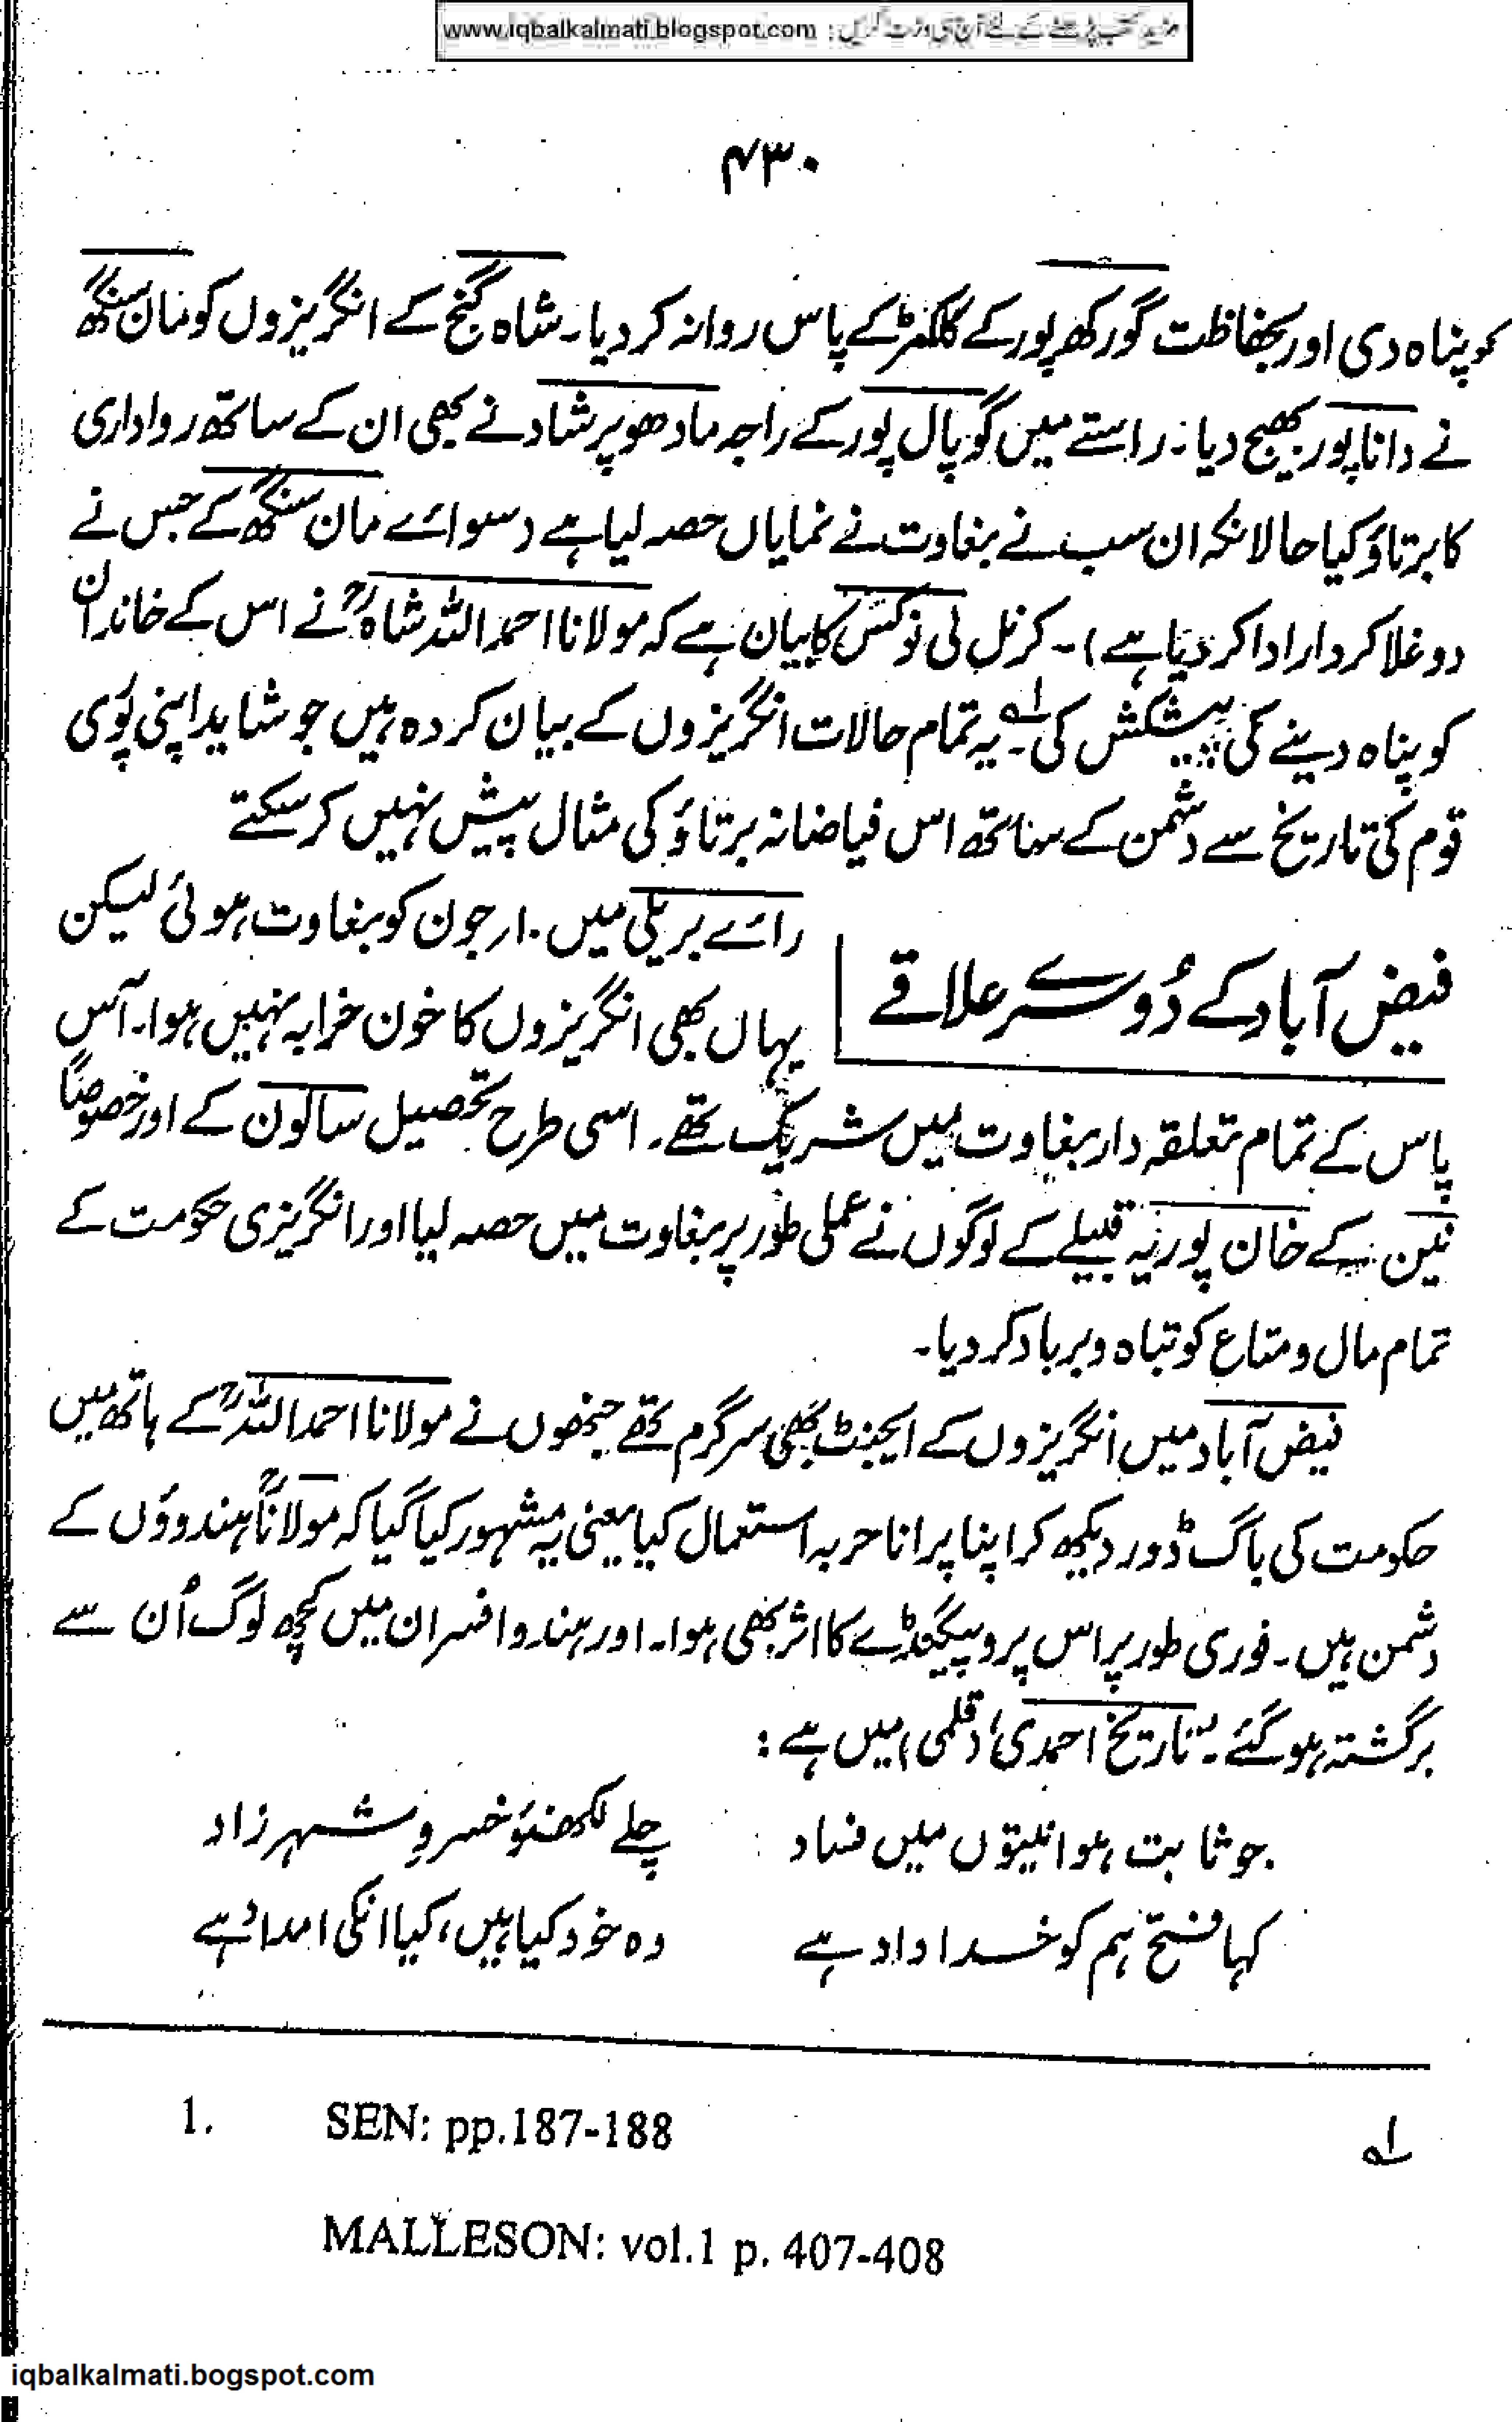 مزید کتب پڑھنے کے لئے آج ہی وزٹ کریں : www.iqbalkalmati.blogspot.com
۴۳۰
کو پناہ دی اور بحفاظت گورکھپور کے کلکٹر کے پاس روانہ کر دیا۔ شاہ گنج کے انگریزوں کو مان سنگھ
نے داناپور بھیج دیا۔ راستے میں گوپال پور کے راجہ مادھو پرشاد نے بھی ان کے ساتھ رواداری
کا برتاؤ کیا حالانکہ ان سب نے بغاوت نے نمایاں حصہ لیا ہے (سوائے مان سنگھ کے جس نے
دوغلا کردار ادا کر دیا ہے)۔ کرنل لی نوکس کا بیان ہے کہ مولانا احمد اللہ شاہؒ نے اس کے خاندان
کو پناہ دینے کی پیشکش کی۔۱؎ یہ تمام حالات انگریزوں کے بیان کردہ ہیں جو شاید اپنی پوری
قوم کی تاریخ سے دشمن کے ساتھ اس فیاضانہ برتاؤ کی مثال پیش نہیں کر سکتے
فیض آباد کے دُوسرے علاقے
رائے بریلی میں ۱۰؍ جون کو بغاوت ہوئی لیکن
یہاں بھی انگریزوں کا خون خرابہ نہیں ہوا۔ آس
پاس کے تمام تعلقہ دار بغاوت میں شریک تھے۔ اسی طرح تحصیل سالون کے اور خصوصاً
نین کے خان پوریہ قبیلے کے لوگوں نے عملی طور پر بغاوت میں حصہ لیا اور انگریزی حکومت کے
تمام مال و متاع کو تباہ و برباد کر دیا۔
فیض آباد میں انگریزوں کے ایجنٹ بھی سرگرم تھے جنھوں نے مولانا احمد اللہؒ کے ہاتھ میں
حکومت کی باگ ڈور دیکھ کر اپنا پرانا حربہ استعمال کیا یعنی یہ مشہور کیا گیا کہ مولاناؒ ہندوؤں کے
دشمن ہیں۔ فوری طور پر اس پروپیگنڈے کا اثر بھی ہوا۔ اور ہندو افسران میں کچھ لوگ اُن سے
برگشتہ ہو گئے۔ "تاریخ احمدی" (قلمی) میں ہے :
جو ثابت ہوا نیتوں میں فساد چلے لکھنؤ خسروِ شہر زاد
کہا فتح ہم کو خداداد ہے وہ خود کیا ہیں، کیا انکی امداد ہے
۱؎ 1. SEN: pp.187-188
MALLESON: vol.1 p. 407-408
iqbalkalmati.bogspot.com